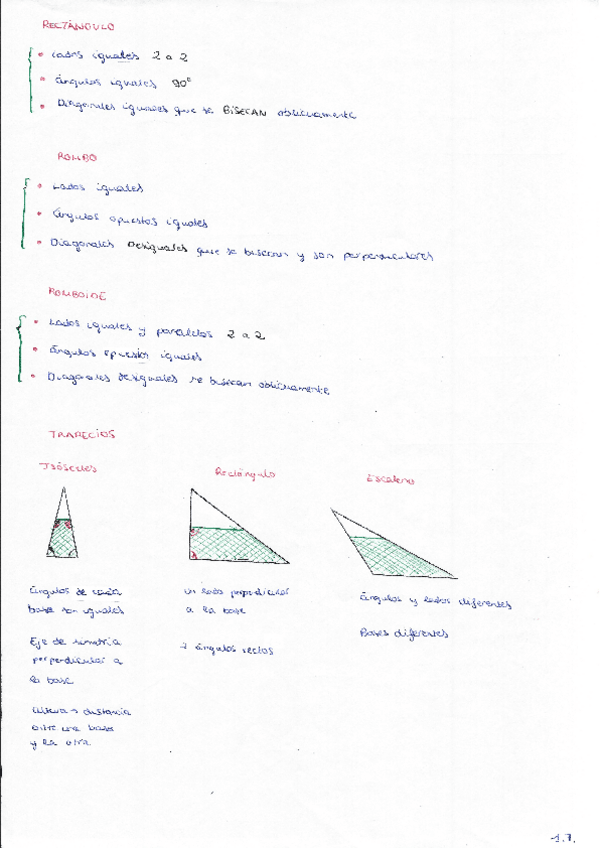 RECTÁNGULO
• Lados iguales 2 a 2
• Ángulos iguales 90°
• Diagonales iguales que se BISECAN oblicuamente
ROMBO
• Lados iguales
• Ángulos opuestos iguales
• Diagonales Desiguales que se bisecan y son perpendiculares
ROMBOIDE
• Lados iguales y paralelos 2 a 2
• Ángulos opuestos iguales
• Diagonales desiguales se bisecan oblicuamente
TRAPECIOS
Isósceles
Rectángulo
Escaleno
Ángulos de cada
base son iguales
Eje de simetría
perpendicular a
la base
Altura → distancia
entre una base
y la otra
Un lado perpendicular
a la base
2 ángulos rectos
Ángulos y lados diferentes
Bases diferentes
1.7.